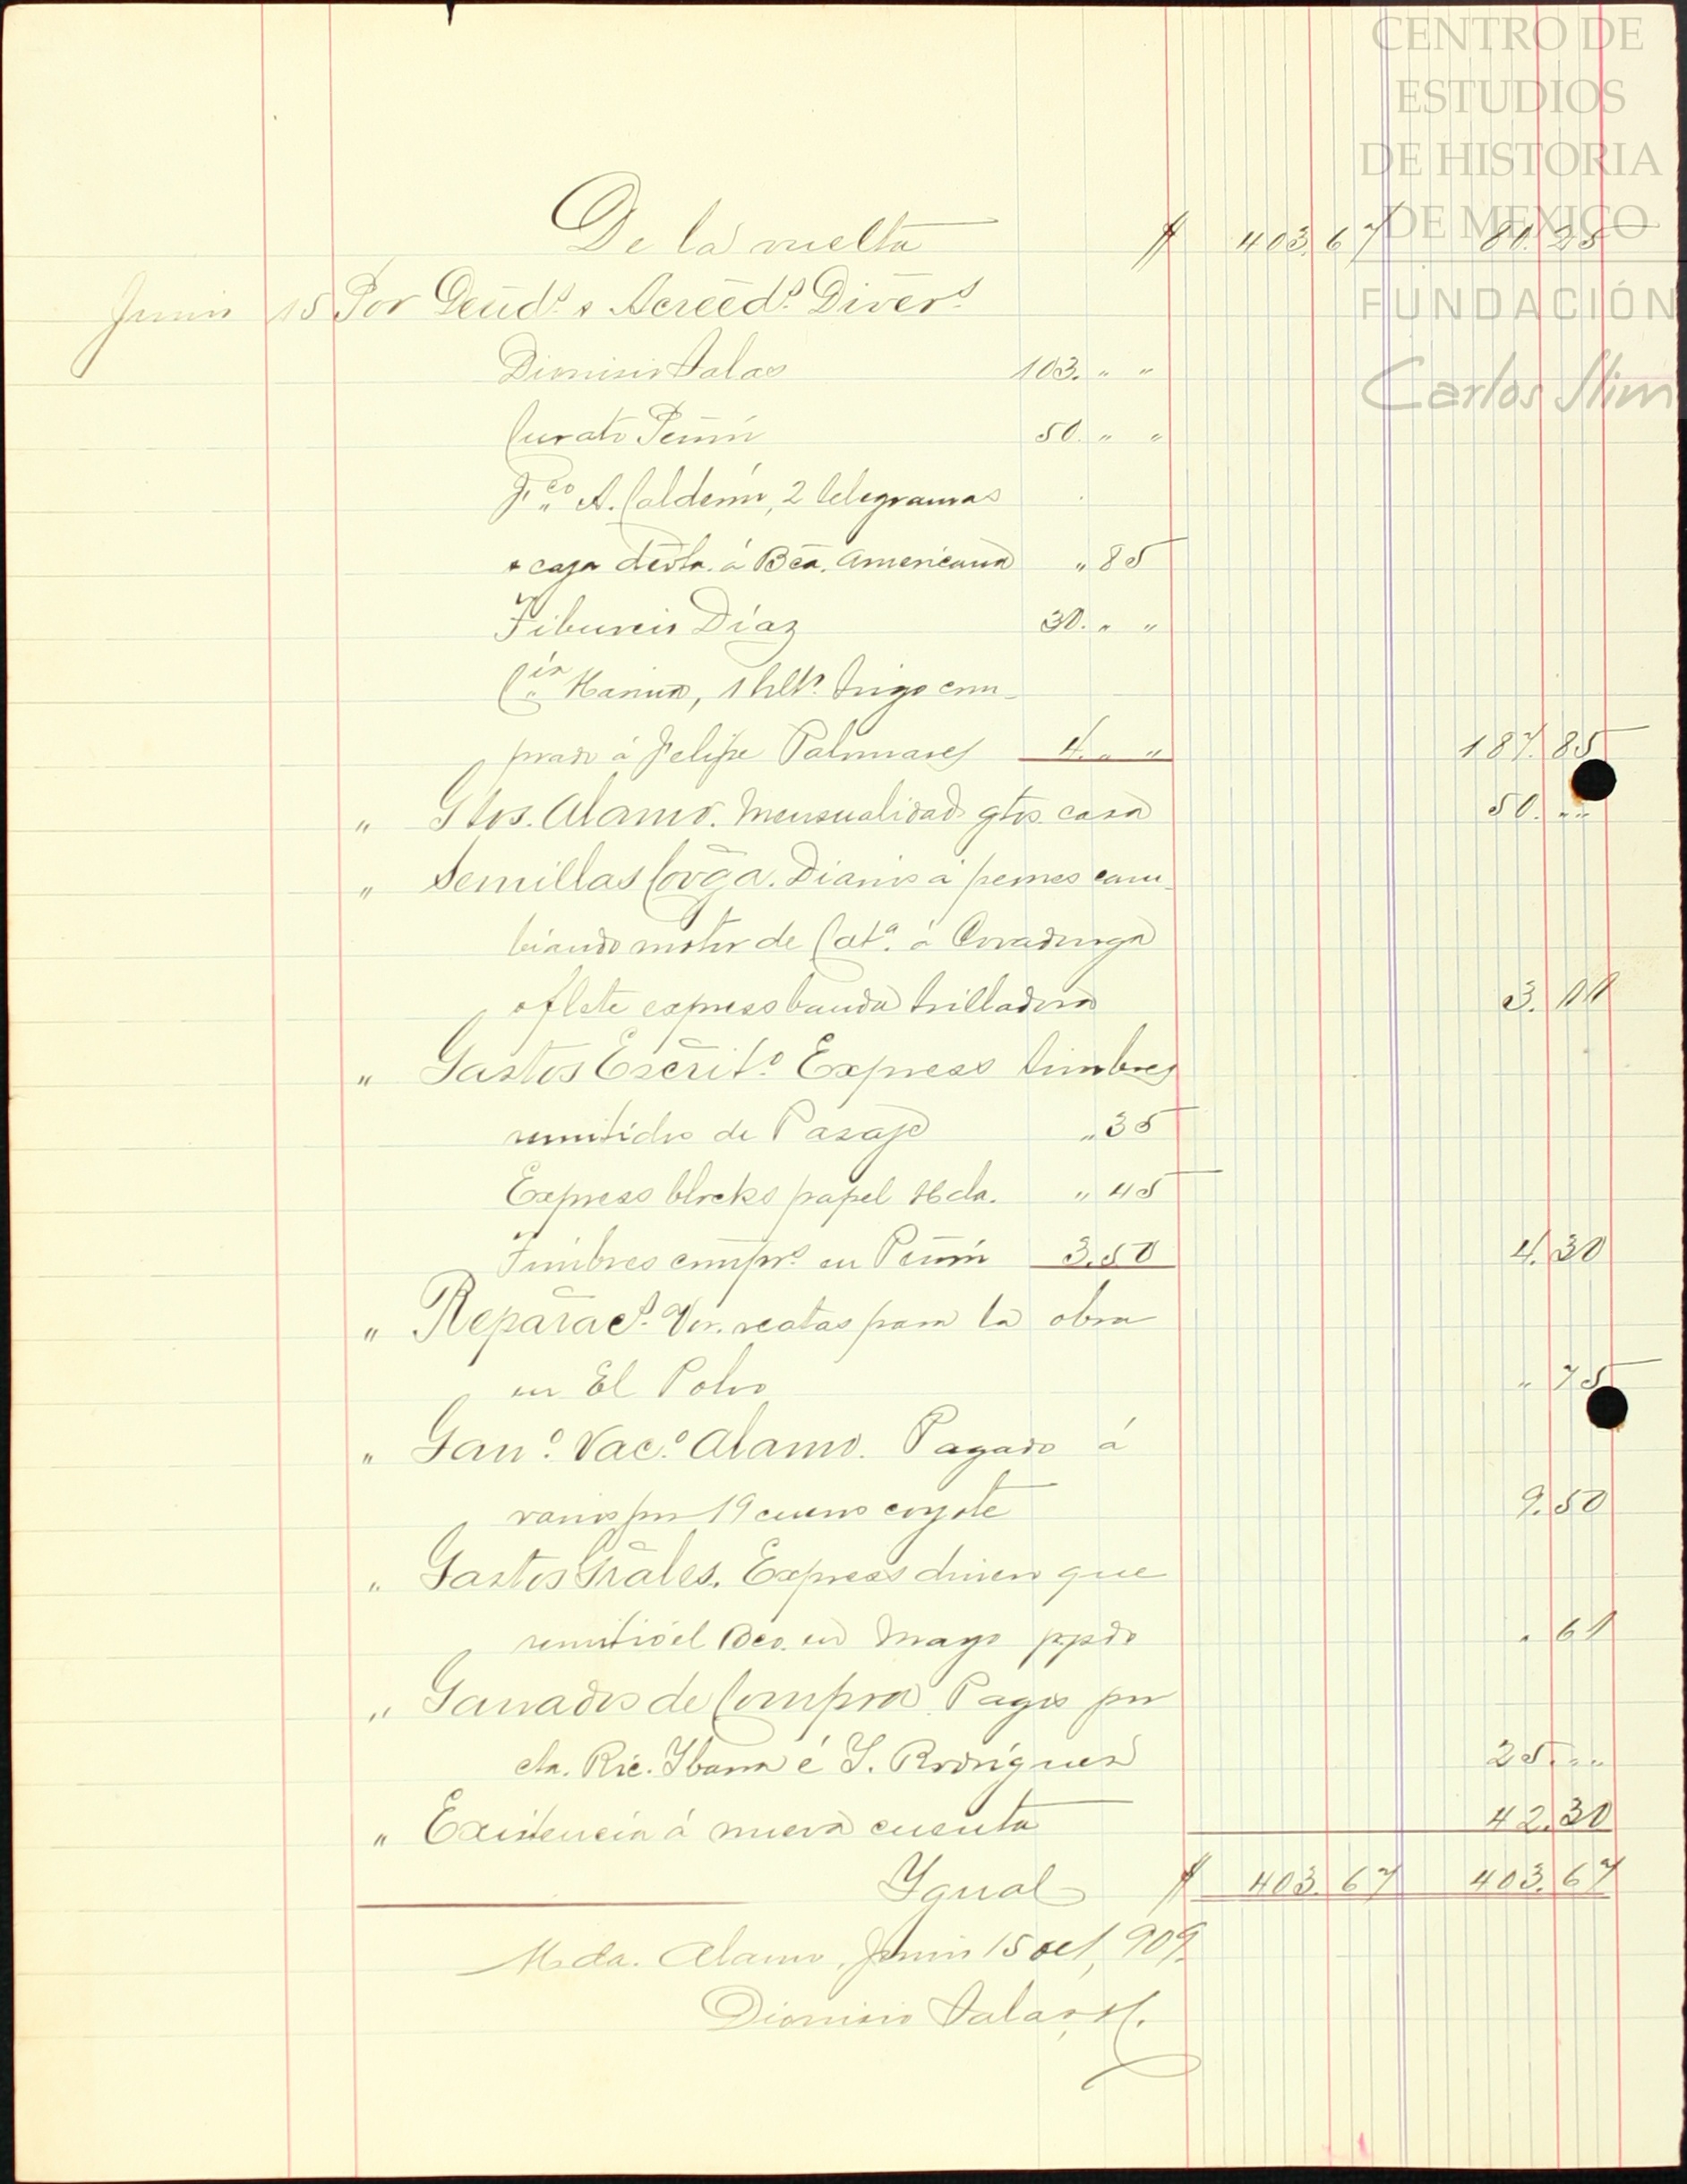 CENTRO DE
ESTUDIOS
DE HISTORIA
DE MEXICO
FUNDACIÓN
Carlos Slim
De la vuelta $ 403.67 80.25
Junio 15 Por Deud.s & Acreed.s Divers.
Dionisio Salas 103. " "
Curato Peñón 50. " "
F.co A. Calderón, 2 telegramas
& caja devta. á Bca. Americana " 85
Tiburcio Díaz 30. " "
C.ía Harina, 1 hlt.o trigo com-
prado á Felipe Palomares 4. " " 187.85
" Gtos. Alamo. Mensualidad gtos. casa 50. " "
" Semillas Covga. Diarios á peones cam-
biando motor de Cat.a á Covadonga
& flete express banda trilladora 3.11
" Gastos Escrit.o Express timbres
remitidos de Pasaje " 35
Express blocks papel Hda. " 45
Timbres compr.s en Peñón 3.50 4.30
" Reparac.s Vor. reatas para la obra
en El Polvo " 75
" Gan.o Vac.o Alamo. Pagado á
varios por 19 cueros coyote 9.50
" Gastos Grales. Express dinero que
remitió el Bco. en Mayo ppdo " 61
" Ganados de Compra. Pagos por
cta. Ric. Ybarra é Y. Rodríguez 25. " "
" Existencia á nueva cuenta 42.30
Ygual $ 403.67 403.67
Hda. Alamo, Junio 15 de 1,909.
Dionisio Salas H.